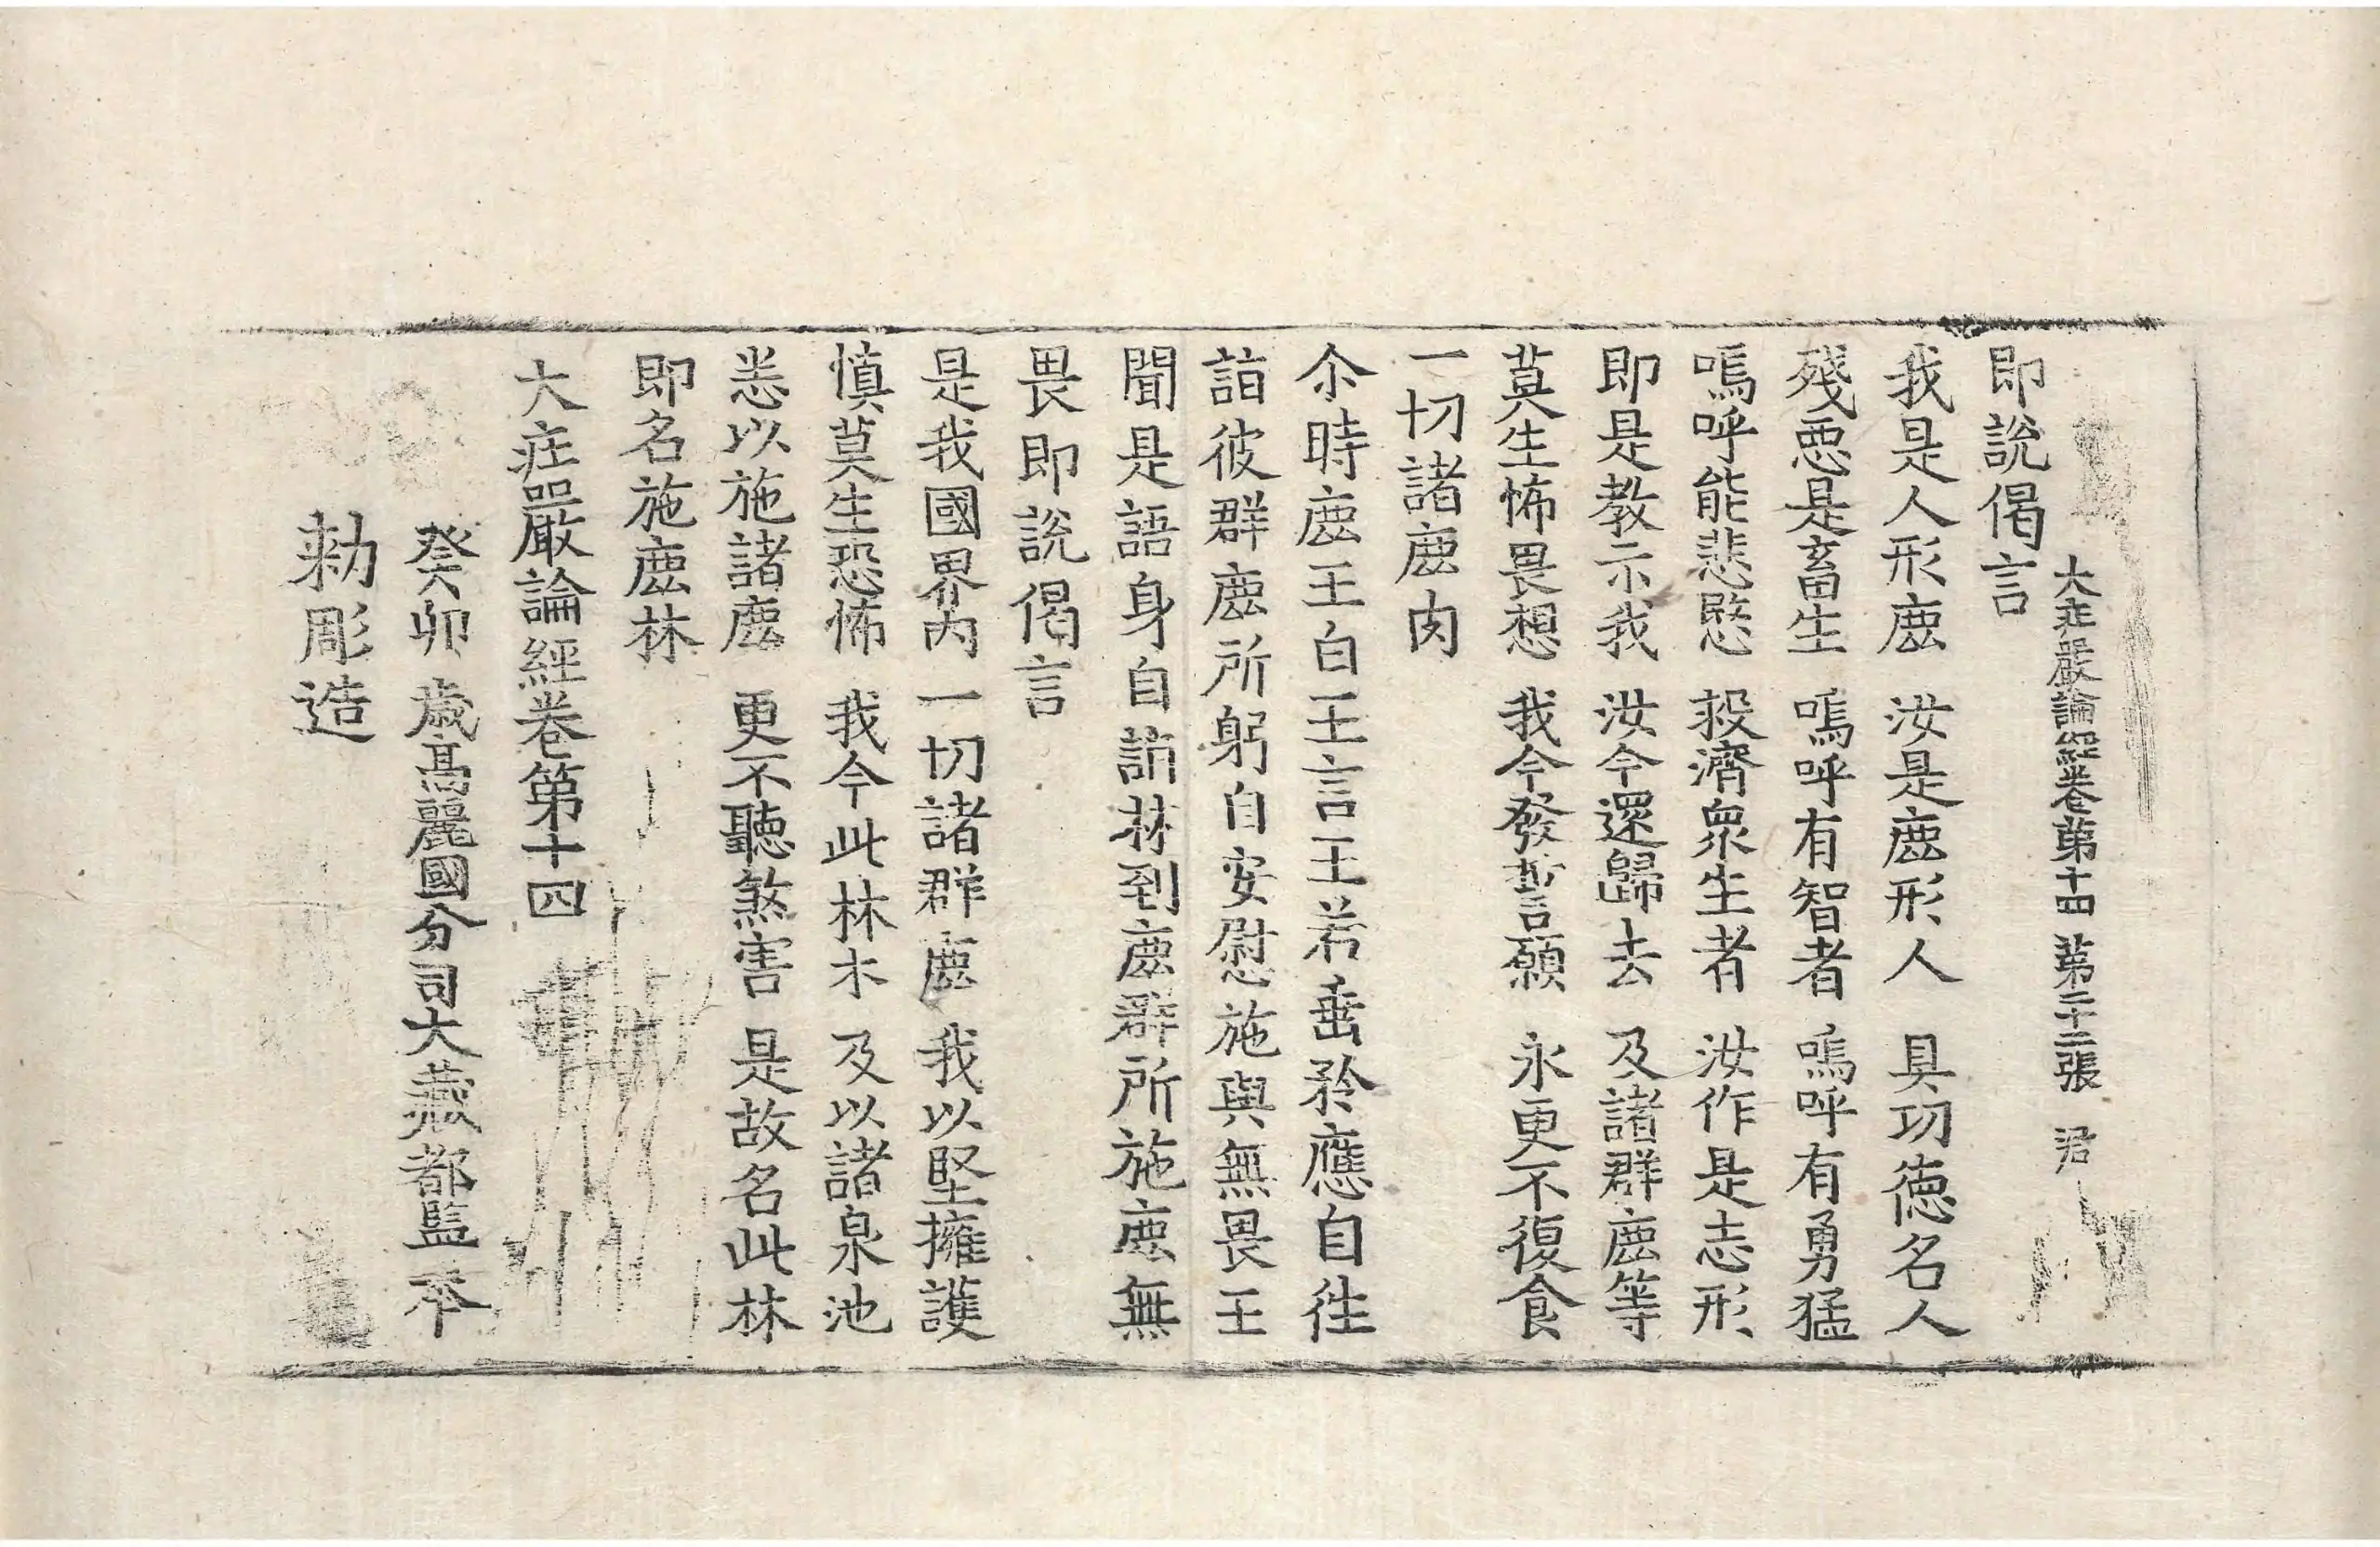 大莊嚴論經卷第十四 第二十三張 君
即說偈言
我是人形鹿 汝是鹿形人 具功德名人
殘惡是畜生 嗚呼有智者 嗚呼有勇猛
嗚呼能悲愍 救濟眾生者 汝作是志形
即是教示我 汝今還歸去 及諸群鹿等
莫生怖畏想 我今發誓願 永更不復食
一切諸鹿肉
尒時鹿王白王言王若垂矜應自往
詣彼群鹿所躬自安慰施與無畏王
聞是語身自詣林到鹿群所施鹿無
畏即說偈言
是我國界內 一切諸群鹿 我以堅擁護
慎莫生恐怖 我今此林木 及以諸泉池
悉以施諸鹿 更不聽煞害 是故名此林
即名施鹿林
大莊嚴論經卷第十四
癸卯歲高麗國分司大藏都監奉
勅彫造